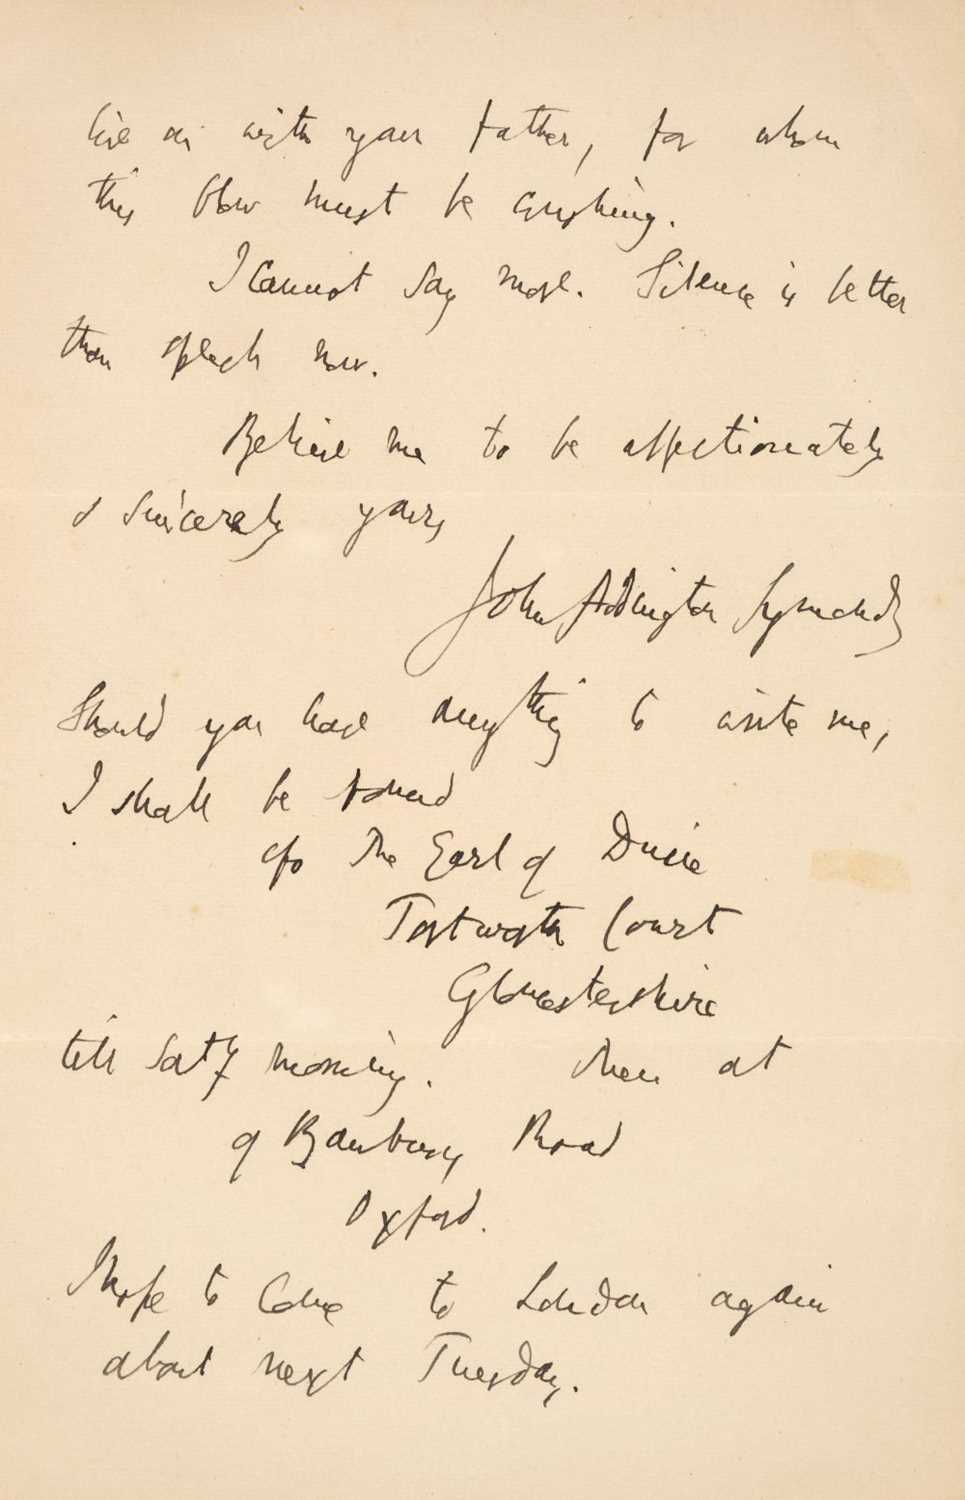 live on with your father, for whom
this blow must be crushing.
I cannot say more. Silence is better
than speech now.
Believe me to be affectionately
& sincerely yours
John Addington Symonds
Should you have anything to write me,
I shall be found
c/o The Earl of Ducie
Tortworth Court
Gloucestershire
till Satdy morning. Then at
9 Banbury Road
Oxford.
I hope to come to London again
about next Tuesday.